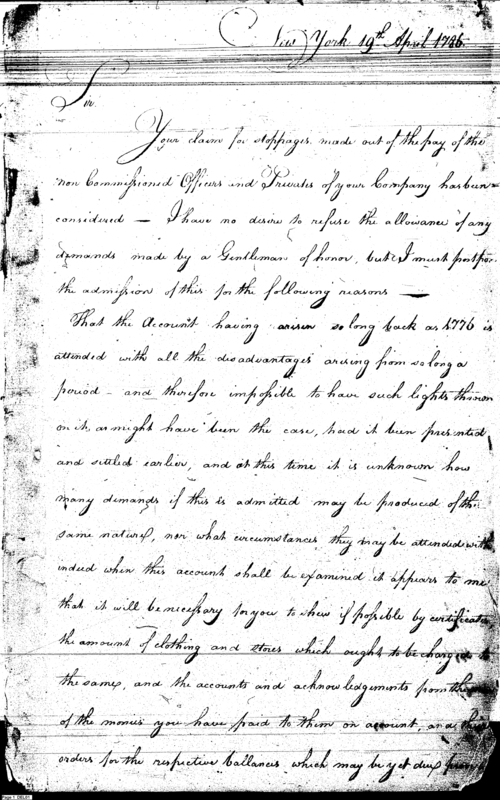 New York 19th April 1786.
Sir.
Your claim for stoppages made out of the pay of the
non Commissioned Officers and Privates of your Company has been
considered — I have no desire to refuse the allowance of any
demands made by a Gentleman of honor, but I must postpone
the admission of this for the following reasons —
That the Account having arisen so long back as 1776 is
attended with all the disadvantages arising from so long a
period — and therefore impossible to have such lights thrown
on it, as might have been the case, had it been presented
and settled earlier, and at this time it is unknown how
many demands if this is admitted may be produced of the
same nature, nor what circumstances they may be attended with
indeed when this account shall be examined it appears to me
that it will be necessary for you to shew if possible by certificates
the amount of clothing and stores which ought to be charged to
the same, and the accounts and acknowledgements from the
of the monies you have paid to them on account, and their
orders for the respective ballances which may be yet due